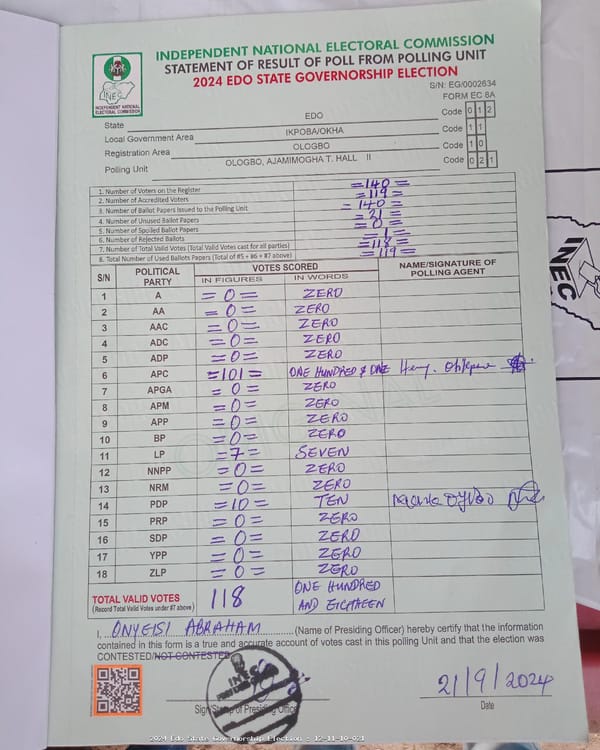 INDEPENDENT NATIONAL ELECTORAL COMMISSION
STATEMENT OF RESULT OF POLL FROM POLLING UNIT
2024 EDO STATE GOVERNORSHIP ELECTION
INEC
INDEPENDENT NATIONAL ELECTORAL COMMISSION
S/N: EG/0002634
FORM EC 8A
State EDO Code 0 1 2
Local Government Area IKPOBA/OKHA Code 1 1
Registration Area OLOGBO Code 1 0
Polling Unit OLOGBO, AJAMIMOGHA T. HALL II Code 0 2 1
1. Number of Voters on the Register =140=
2. Number of Accredited Voters =119=
3. Number of Ballot Papers Issued to the Polling Unit =140=
4. Number of Unused Ballot Papers =21=
5. Number of Spoiled Ballot Papers =0=
6. Number of Rejected Ballots =1=
7. Number of Total Valid Votes (Total Valid Votes cast for all parties) =118=
8. Total Number of Used Ballots Papers (Total of #5 + #6 + #7 above) =119=
S/N POLITICAL PARTY VOTES SCORED NAME/SIGNATURE OF POLLING AGENT
IN FIGURES IN WORDS
1 A =0= ZERO
2 AA =0= ZERO
3 AAC =0= ZERO
4 ADC =0= ZERO
5 ADP =0= ZERO
6 APC =101= ONE HUNDRED & ONE Henry
7 APGA =0= ZERO
8 APM =0= ZERO
9 APP =0= ZERO
10 BP =0= ZERO
11 LP =7= SEVEN
12 NNPP =0= ZERO
13 NRM =0= ZERO
14 PDP =10= TEN
15 PRP =0= ZERO
16 SDP =0= ZERO
17 YPP =0= ZERO
18 ZLP =0= ZERO
TOTAL VALID VOTES 118 ONE HUNDRED
(Record Total Valid Votes under #7 above) AND EIGHTEEN
I, ONYEISI ABRAHAM (Name of Presiding Officer) hereby certify that the information
contained in this form is a true and accurate account of votes cast in this polling Unit and that the election was
CONTESTED/NOT CONTESTED.
21/9/2024
Sign Stamp of Presiding Officer Date
2024 Edo State Governorship Election - 12-11-10-021
INEC